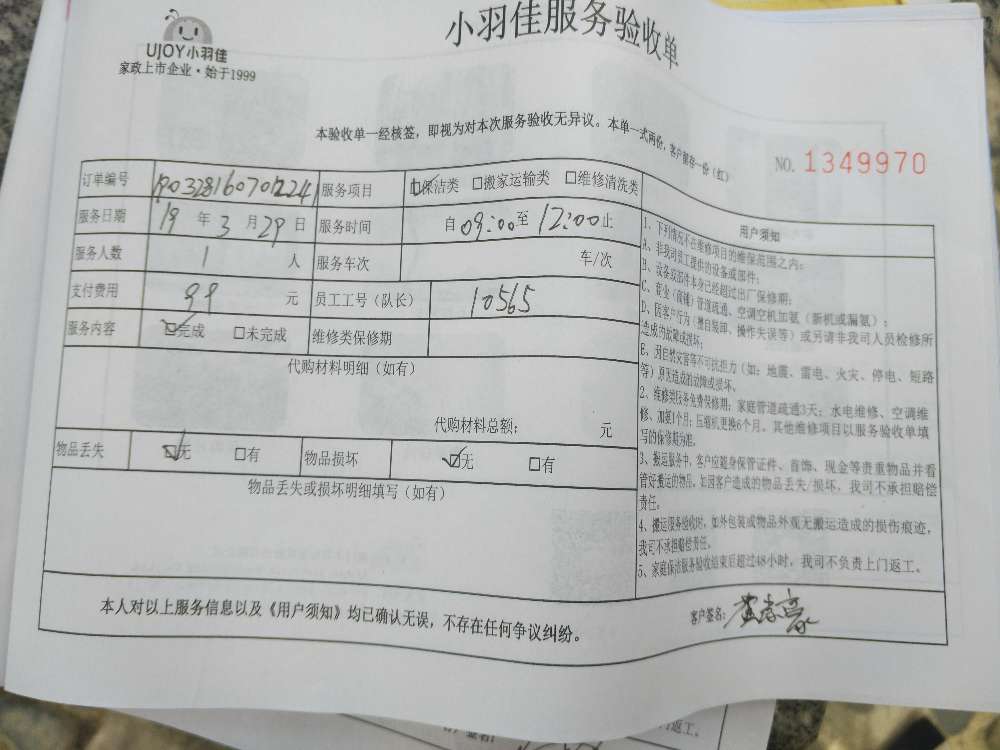 UJOY小羽佳
家政上市企业·始于1999
小羽佳服务验收单
本验收单一经核签，即视为对本次服务验收无异议。本单一式两份，客户留存一份（红）
NO. 1349970
订单编号 服务项目 保洁类 搬家运输类 维修清洗类
服务日期 19 年 3 月 29 日 服务时间 自 09:00 至 12:00 止
服务人数 1 人 服务车次 车/次
支付费用 99 元 员工工号（队长） 10565
服务内容 完成 未完成 维修类保修期
代购材料明细（如有）
代购材料总额： 元
物品丢失 无 有 物品损坏 无 有
物品丢失或损坏明细填写（如有）
用户须知
1、下列情况不在维修项目的维保范围之内：
A、非我司员工提供的设备或部件；
B、设备或部件本身已经超过出厂保修期；
C、商业（店铺）管道疏通、空调空机加氨（新机或漏氨）；
D、因客户行为（擅自装卸、操作失误等）或另请非我司人员检修所
造成的故障或损坏；
E、因自然灾害等不可抗担力（如：地震、雷电、火灾、停电、短路
等）原因造成的故障或损坏。
2、维修类服务免费保修期：家庭管道疏通3天；水电维修、空调维
修、加氨1个月；压缩机更换6个月。其他维修项目以服务验收单填
写的保修期为准。
3、搬运服务中，客户应随身保管证件、首饰、现金等贵重物品并看
管好搬运的物品。如因客户造成的物品丢失/损坏，我司不承担赔偿
责任。
4、搬运服务验收时，如外包装或物品外观无搬运造成的损伤痕迹，
我司不承担赔偿责任。
5、家庭保洁服务验收结束后超过48小时，我司不负责上门返工。
本人对以上服务信息以及《用户须知》均已确认无误，不存在任何争议纠纷。
客户签名：